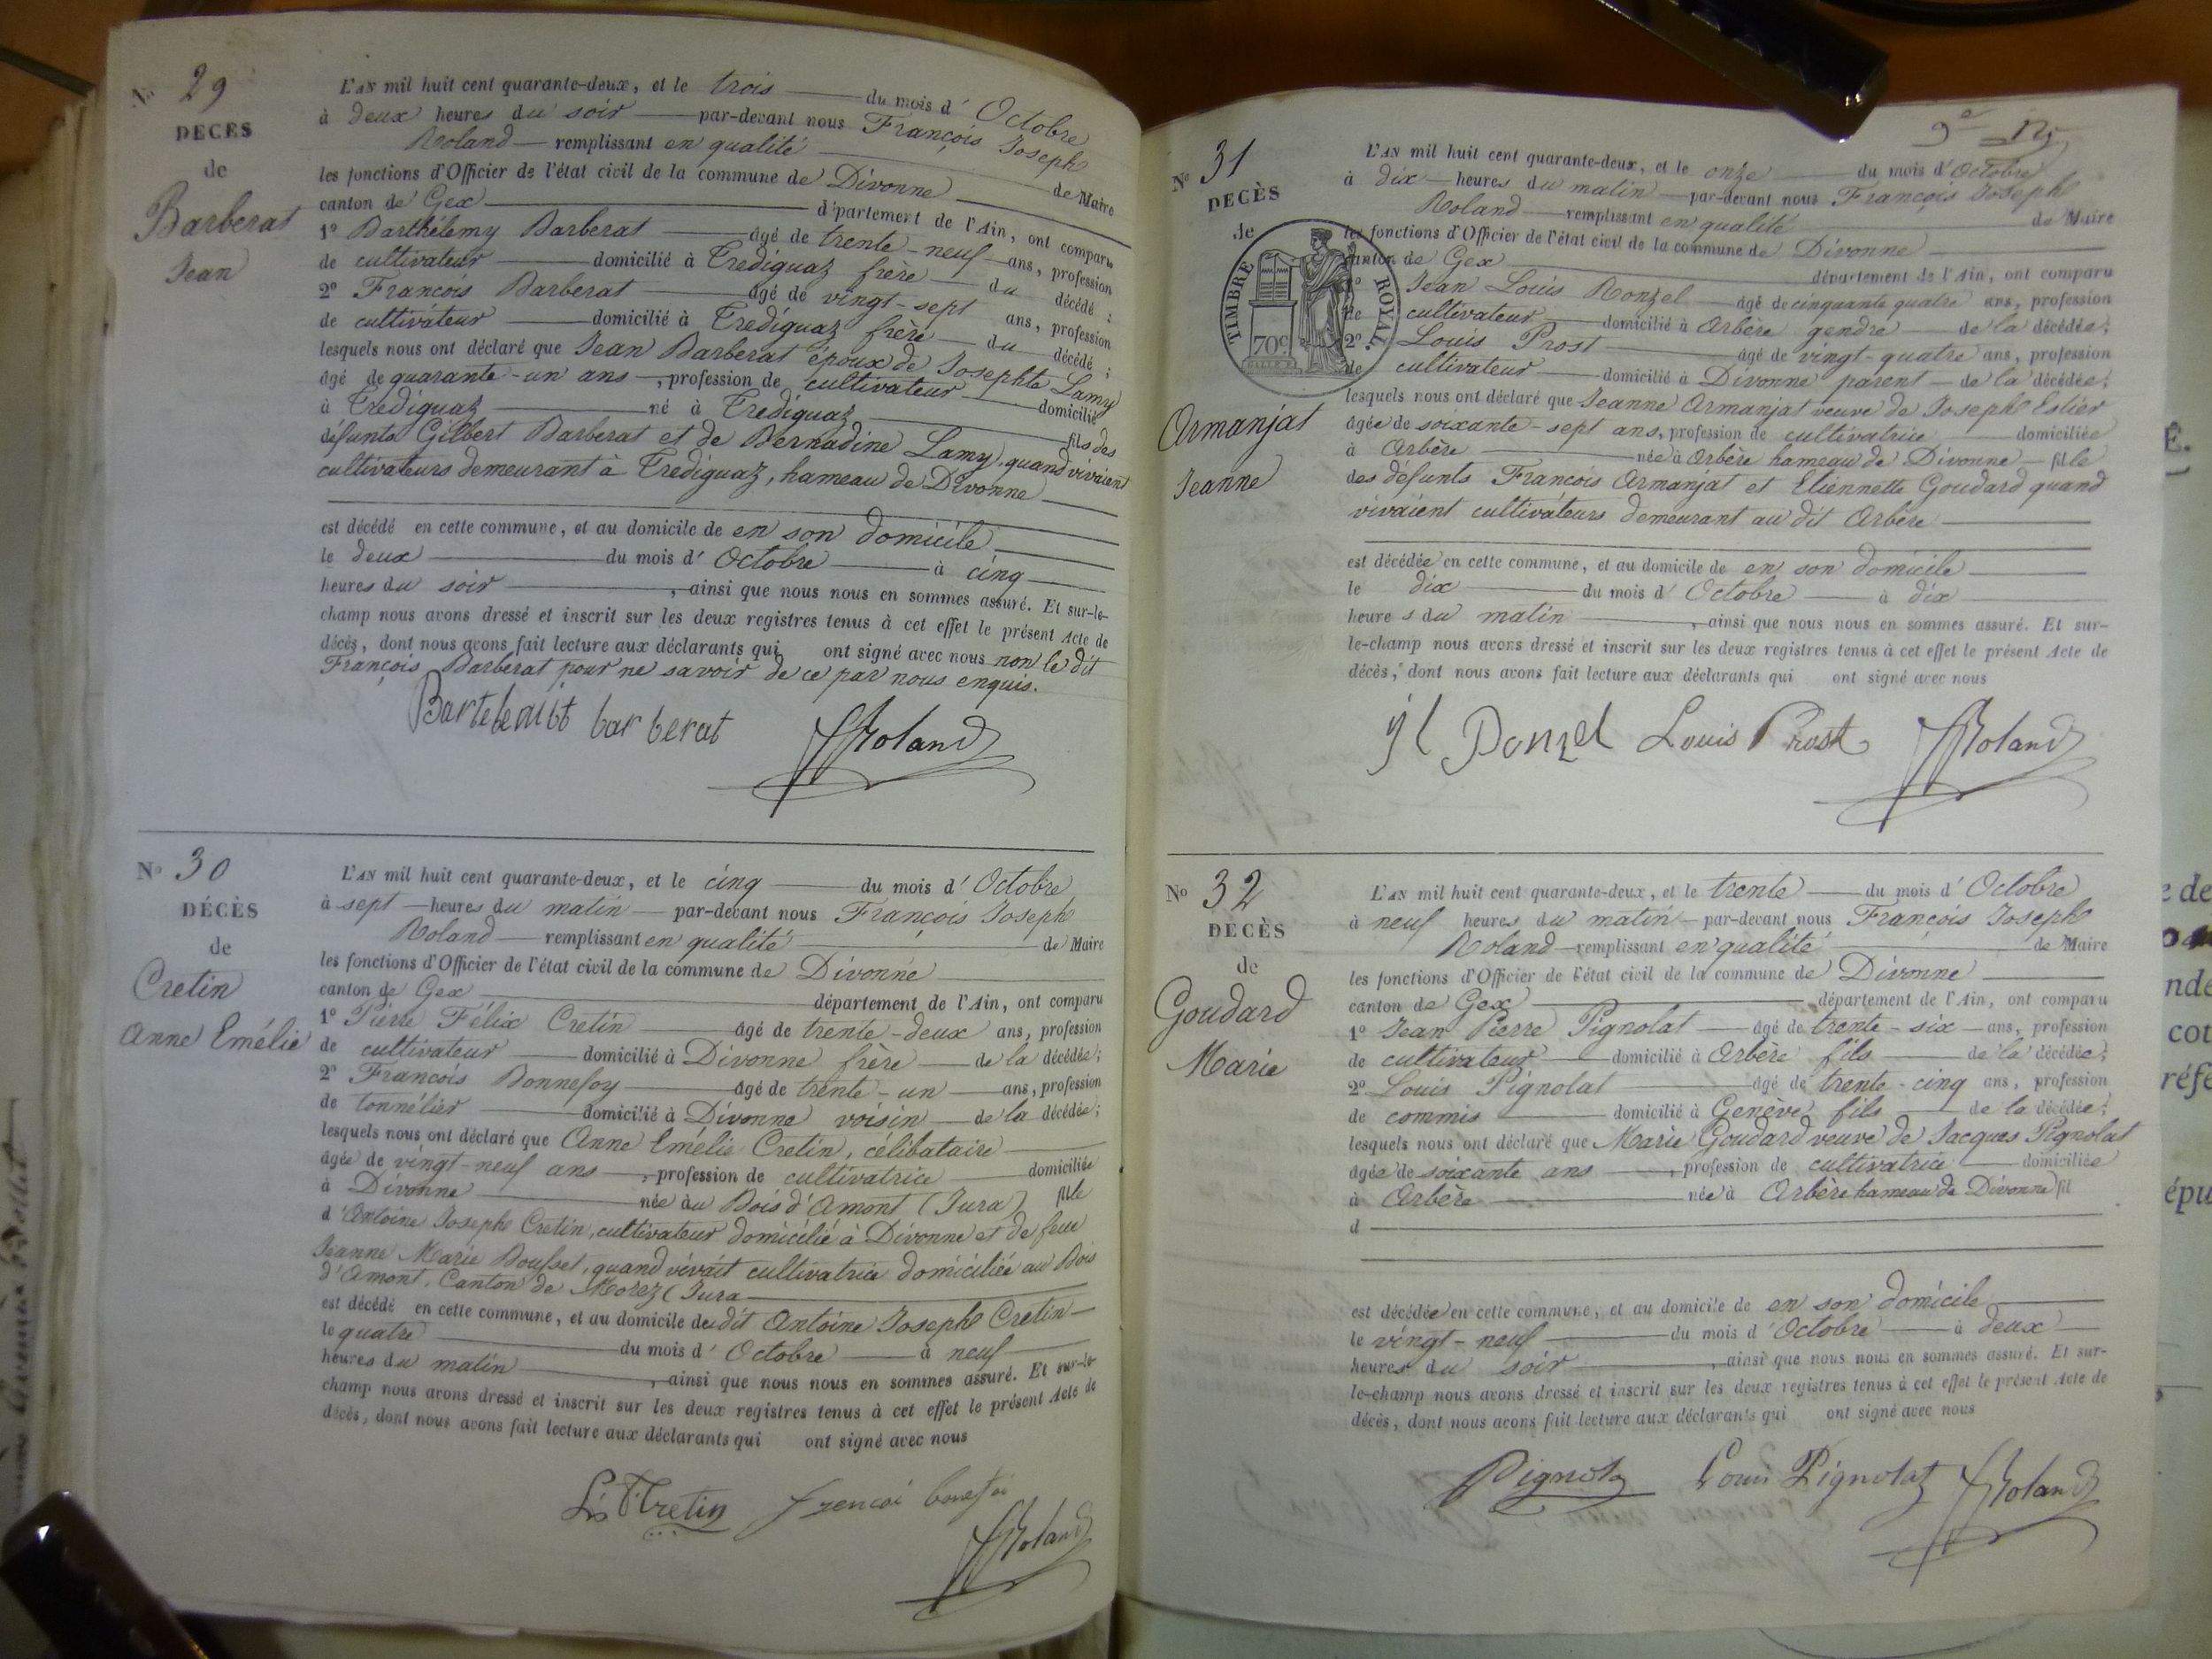 N° 29
DECES
de
Barberat
Jean
L'AN mil huit cent quarante-deux, et le trois du mois d' Octobre
à deux heures du soir par-devant nous François Joseph
Roland remplissant en qualité de Maire
les fonctions d'Officier de l'état civil de la commune de Divonne
canton de Gex département de l'Ain, ont comparu
1° Barthélemy Barberat âgé de trente-neuf ans, profession
de cultivateur domicilié à Trediguaz frère du décédé ;
2° François Barberat âgé de vingt-sept ans, profession
de cultivateur domicilié à Trediguaz frère du décédé ;
lesquels nous ont déclaré que Jean Barberat époux de Josephte Lamy
âgé de quarante-un ans, profession de cultivateur domicilié
à Trediguaz né à Trediguaz fils des
défunts Gilbert Barberat et de Bernadine Lamy, quand vivaient
cultivateurs demeurant à Trediguaz, hameau de Divonne
est décédé en cette commune, et au domicile de en son domicile,
le deux du mois d' Octobre à cinq
heures du soir, ainsi que nous nous en sommes assuré. Et sur-le-
champ nous avons dressé et inscrit sur les deux registres tenus à cet effet le présent Acte de
décès, dont nous avons fait lecture aux déclarants qui ont signé avec nous non le dit
François Barberat pour ne savoir de ce par nous enquis.
barberat FJRoland
N° 30
DÉCÈS
de
Cretin
Anne Emélie
L'AN mil huit cent quarante-deux, et le cinq du mois d' Octobre
à sept heures du matin par-devant nous François Joseph
Roland remplissant en qualité de Maire
les fonctions d'Officier de l'état civil de la commune de Divonne
canton de Gex département de l'Ain, ont comparu
1° Pierre Félix Cretin âgé de trente-deux ans, profession
de cultivateur domicilié à Divonne frère de la décédée;
2° François Bonnefoy âgé de trente-un ans, profession
de tonnélier domicilié à Divonne voisin de la décédée;
lesquels nous ont déclaré que Anne Emélie Cretin, célibataire
âgée de vingt-neuf ans, profession de cultivatrice domiciliée
à Divonne née au Bois d'Amont (Jura) fille
d'Antoine Joseph Cretin, cultivateur domicilié à Divonne et de feue
Jeanne Marie Bousset, quand vivait cultivatrice domiciliée au Bois
d'Amont, Canton de Morez (Jura
est décédé en cette commune, et au domicile du dit Antoine Joseph Cretin
le quatre du mois d' Octobre à neuf
heures du matin, ainsi que nous nous en sommes assuré. Et sur-le-
champ nous avons dressé et inscrit sur les deux registres tenus à cet effet le présent Acte de
décès, dont nous avons fait lecture aux déclarants qui ont signé avec nous
Cretin FJRoland
9e
N° 31
DECÈS
de
TIMBRE ROYAL.
70c
Armanjat
Jeanne
L'AN mil huit cent quarante-deux, et le onze du mois d'Octobre
à dix heures du matin par-devant nous François Joseph
Roland remplissant en qualité de Maire
les fonctions d'Officier de l'état civil de la commune de Divonne
canton de Gex département de l'Ain, ont comparu
1° Jean Louis Ronzel âgé de cinquante quatre ans, profession
de cultivateur domicilié à Arbère gendre de la décédée;
2° Louis Prost âgé de vingt-quatre ans, profession
de cultivateur domicilié à Divonne parent de la décédée;
lesquels nous ont déclaré que Jeanne Armanjat veuve de Joseph Estier
âgée de soixante-sept ans, profession de cultivatrice domiciliée
à Arbère née à Arbère hameau de Divonne fille
des défunts François Armanjat et Etiennette Goudard quand
vivaient cultivateurs demeurant au dit Arbère
est décédée en cette commune, et au domicile de en son domicile
le dix du mois d' Octobre à dix
heures du matin, ainsi que nous nous en sommes assuré. Et sur-
le-champ nous avons dressé et inscrit sur les deux registres tenus à cet effet le présent Acte de
décès, dont nous avons fait lecture aux déclarants qui ont signé avec nous
Louis Prost FJRoland
N° 32
DECÈS
de
Goudard
Marie
L'AN mil huit cent quarante-deux, et le trente du mois d' Octobre
à neuf heures du matin par-devant nous François Joseph
Roland remplissant en qualité de Maire
les fonctions d'Officier de l'état civil de la commune de Divonne
canton de Gex département de l'Ain, ont comparu
1° Jean Pierre Pignolat âgé de trente-six ans, profession
de cultivateur domicilié à Arbère fils de la décédée;
2° Louis Pignolat âgé de trente-cinq ans, profession
de commis domicilié à Genève fils de la décédée;
lesquels nous ont déclaré que Marie Goudard veuve de Jacques Pignolat
âgée de soixante ans, profession de cultivatrice domiciliée
à Arbère née à Arbère hameau de Divonne fil
d
est décédée en cette commune, et au domicile de en son domicile
le vingt-neuf du mois d' Octobre à deux
heures du soir, ainsi que nous nous en sommes assuré. Et sur-
le-champ nous avons dressé et inscrit sur les deux registres tenus à cet effet le présent Acte de
décès, dont nous avons fait lecture aux déclarants qui ont signé avec nous
Louis Pignolat FJRoland